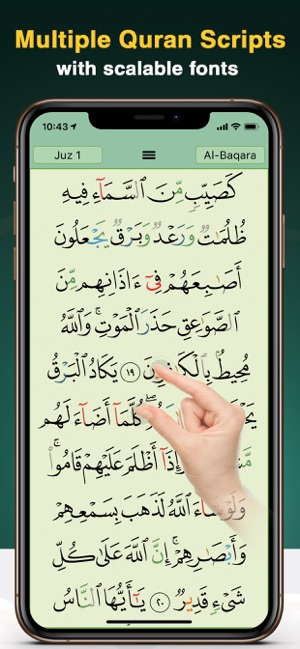 Multiple Quran Scripts
with scalable fonts
10:43
Juz 1
Al-Baqara
كَصَيِّبٍ مِّنَ ٱلسَّمَآءِ فِيهِ
ظُلُمَٰتٌ وَرَعْدٌ وَبَرْقٌ يَجْعَلُونَ
أَصَٰبِعَهُمْ فِىٓ ءَاذَانِهِم مِّنَ
ٱلصَّوَٰعِقِ حَذَرَ ٱلْمَوْتِ ۚ وَٱللَّهُ
مُحِيطٌۢ بِٱلْكَٰفِرِينَ ١٩ يَكَادُ ٱلْبَرْقُ
كُلَّمَآ أَضَآءَ لَهُم
أَظْلَمَ عَلَيْهِمْ قَامُوا۟ ۚ
وَلَوْ شَآءَ ٱللَّهُ لَذَهَبَ بِسَمْعِهِمْ
وَأَبْصَٰرِهِمْ ۚ إِنَّ ٱللَّهَ عَلَىٰ كُلِّ
شَىْءٍ قَدِيرٌ ٢٠ يَٰٓأَيُّهَا ٱلنَّاسُ